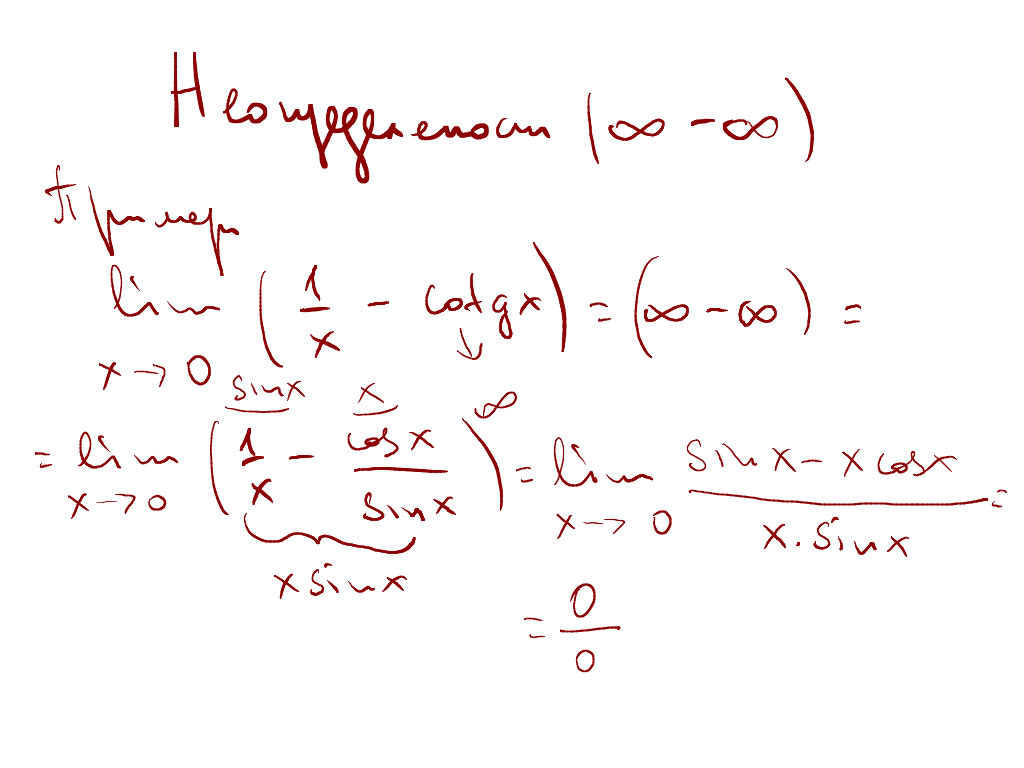 Неопределеност (∞ - ∞)
Пример
lim x→0 (1/x - cotgx) = (∞ - ∞) =
= lim x→0 (1/x - cosx/sinx) ∞ = lim x→0 (sinx - x cosx)/(x . sinx) =
sinx x
x sinx
= 0/0